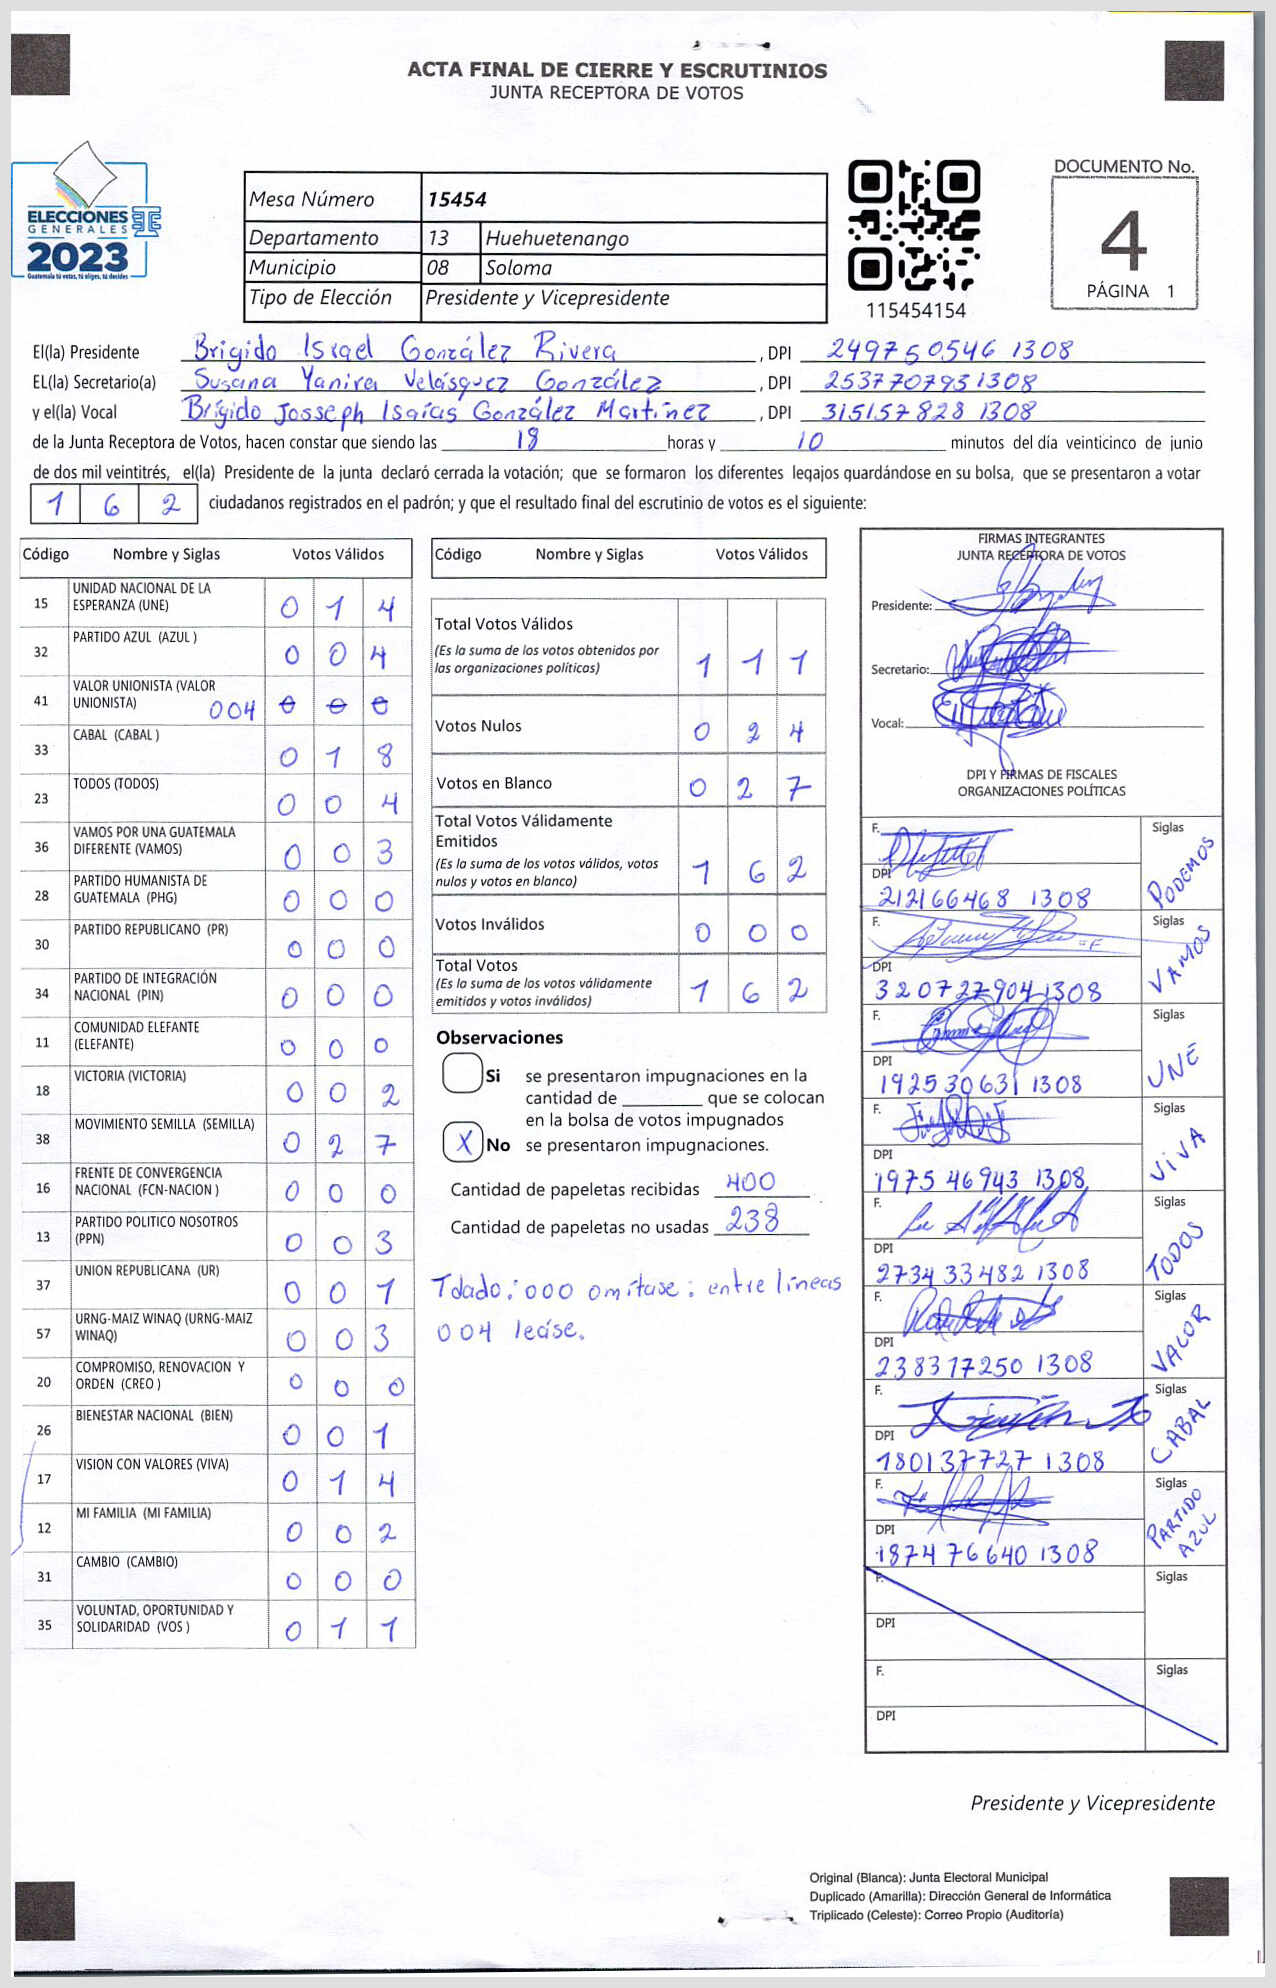 ACTA FINAL DE CIERRE Y ESCRUTINIOS
JUNTA RECEPTORA DE VOTOS
ELECCIONES
GENERALES
2023
Guatemala tú votas, tú eliges, tú decides
Mesa Número 15454
Departamento 13 Huehuetenango
Municipio 08 Soloma
Tipo de Elección Presidente y Vicepresidente
115454154
DOCUMENTO No.
4
PÁGINA 1
El(la) Presidente Brigido Israel González Rivera, DPI 249750546 1308
EL(la) Secretario(a) Susana Yanira Velásquez González, DPI 253770793 1308
y el(la) Vocal Brígido Josseph Isaías González Martínez, DPI 315157828 1308
de la Junta Receptora de Votos, hacen constar que siendo las 18 horas y 10 minutos del día veinticinco de junio
de dos mil veintitrés, el(la) Presidente de la junta declaró cerrada la votación; que se formaron los diferentes legajos guardándose en su bolsa, que se presentaron a votar
1 6 2 ciudadanos registrados en el padrón; y que el resultado final del escrutinio de votos es el siguiente:
Código Nombre y Siglas Votos Válidos
15 UNIDAD NACIONAL DE LA ESPERANZA (UNE) 0 1 4
32 PARTIDO AZUL (AZUL ) 0 0 4
41 VALOR UNIONISTA (VALOR UNIONISTA) 004 0 0 0
33 CABAL (CABAL ) 0 1 8
23 TODOS (TODOS) 0 0 4
36 VAMOS POR UNA GUATEMALA DIFERENTE (VAMOS) 0 0 3
28 PARTIDO HUMANISTA DE GUATEMALA (PHG) 0 0 0
30 PARTIDO REPUBLICANO (PR) 0 0 0
34 PARTIDO DE INTEGRACIÓN NACIONAL (PIN) 0 0 0
11 COMUNIDAD ELEFANTE (ELEFANTE) 0 0 0
18 VICTORIA (VICTORIA) 0 0 2
38 MOVIMIENTO SEMILLA (SEMILLA) 0 2 7
16 FRENTE DE CONVERGENCIA NACIONAL (FCN-NACION ) 0 0 0
13 PARTIDO POLITICO NOSOTROS (PPN) 0 0 3
37 UNION REPUBLICANA (UR) 0 0 1
57 URNG-MAIZ WINAQ (URNG-MAIZ WINAQ) 0 0 3
20 COMPROMISO, RENOVACION Y ORDEN (CREO ) 0 0 0
26 BIENESTAR NACIONAL (BIEN) 0 0 1
17 VISION CON VALORES (VIVA) 0 1 4
12 MI FAMILIA (MI FAMILIA) 0 0 2
31 CAMBIO (CAMBIO) 0 0 0
35 VOLUNTAD, OPORTUNIDAD Y SOLIDARIDAD (VOS ) 0 1 1
Código Nombre y Siglas Votos Válidos
Total Votos Válidos
(Es la suma de los votos obtenidos por
las organizaciones políticas) 1 1 1
Votos Nulos 0 2 4
Votos en Blanco 0 2 7
Total Votos Válidamente
Emitidos
(Es la suma de los votos válidos, votos
nulos y votos en blanco) 1 6 2
Votos Inválidos 0 0 0
Total Votos
(Es la suma de los votos válidamente
emitidos y votos inválidos) 1 6 2
Observaciones
Si se presentaron impugnaciones en la
cantidad de ________ que se colocan
en la bolsa de votos impugnados
X No se presentaron impugnaciones.
Cantidad de papeletas recibidas 400
Cantidad de papeletas no usadas 238
Tdado: 000 omítase: entre líneas
004 leáse.
FIRMAS INTEGRANTES
JUNTA RECEPTORA DE VOTOS
Presidente:
Secretario:
Vocal:
DPI Y FIRMAS DE FISCALES
ORGANIZACIONES POLÍTICAS
F. Siglas PODEMOS
DPI 212166468 1308
F. Siglas VAMOS
DPI 320727904 1308
F. Siglas UNE
DPI 192530631 1308
F. Siglas VIVA
DPI 1975 46943 1308
F. Siglas TODOS
DPI 2734 33482 1308
F. Siglas VALOR
DPI 238317250 1308
F. Siglas CABAL
DPI 180137727 1308
F. Siglas PARTIDO AZUL
DPI 1874 76640 1308
F. Siglas
DPI
F. Siglas
DPI
Presidente y Vicepresidente
Original (Blanca): Junta Electoral Municipal
Duplicado (Amarilla): Dirección General de Informática
Triplicado (Celeste): Correo Propio (Auditoría)